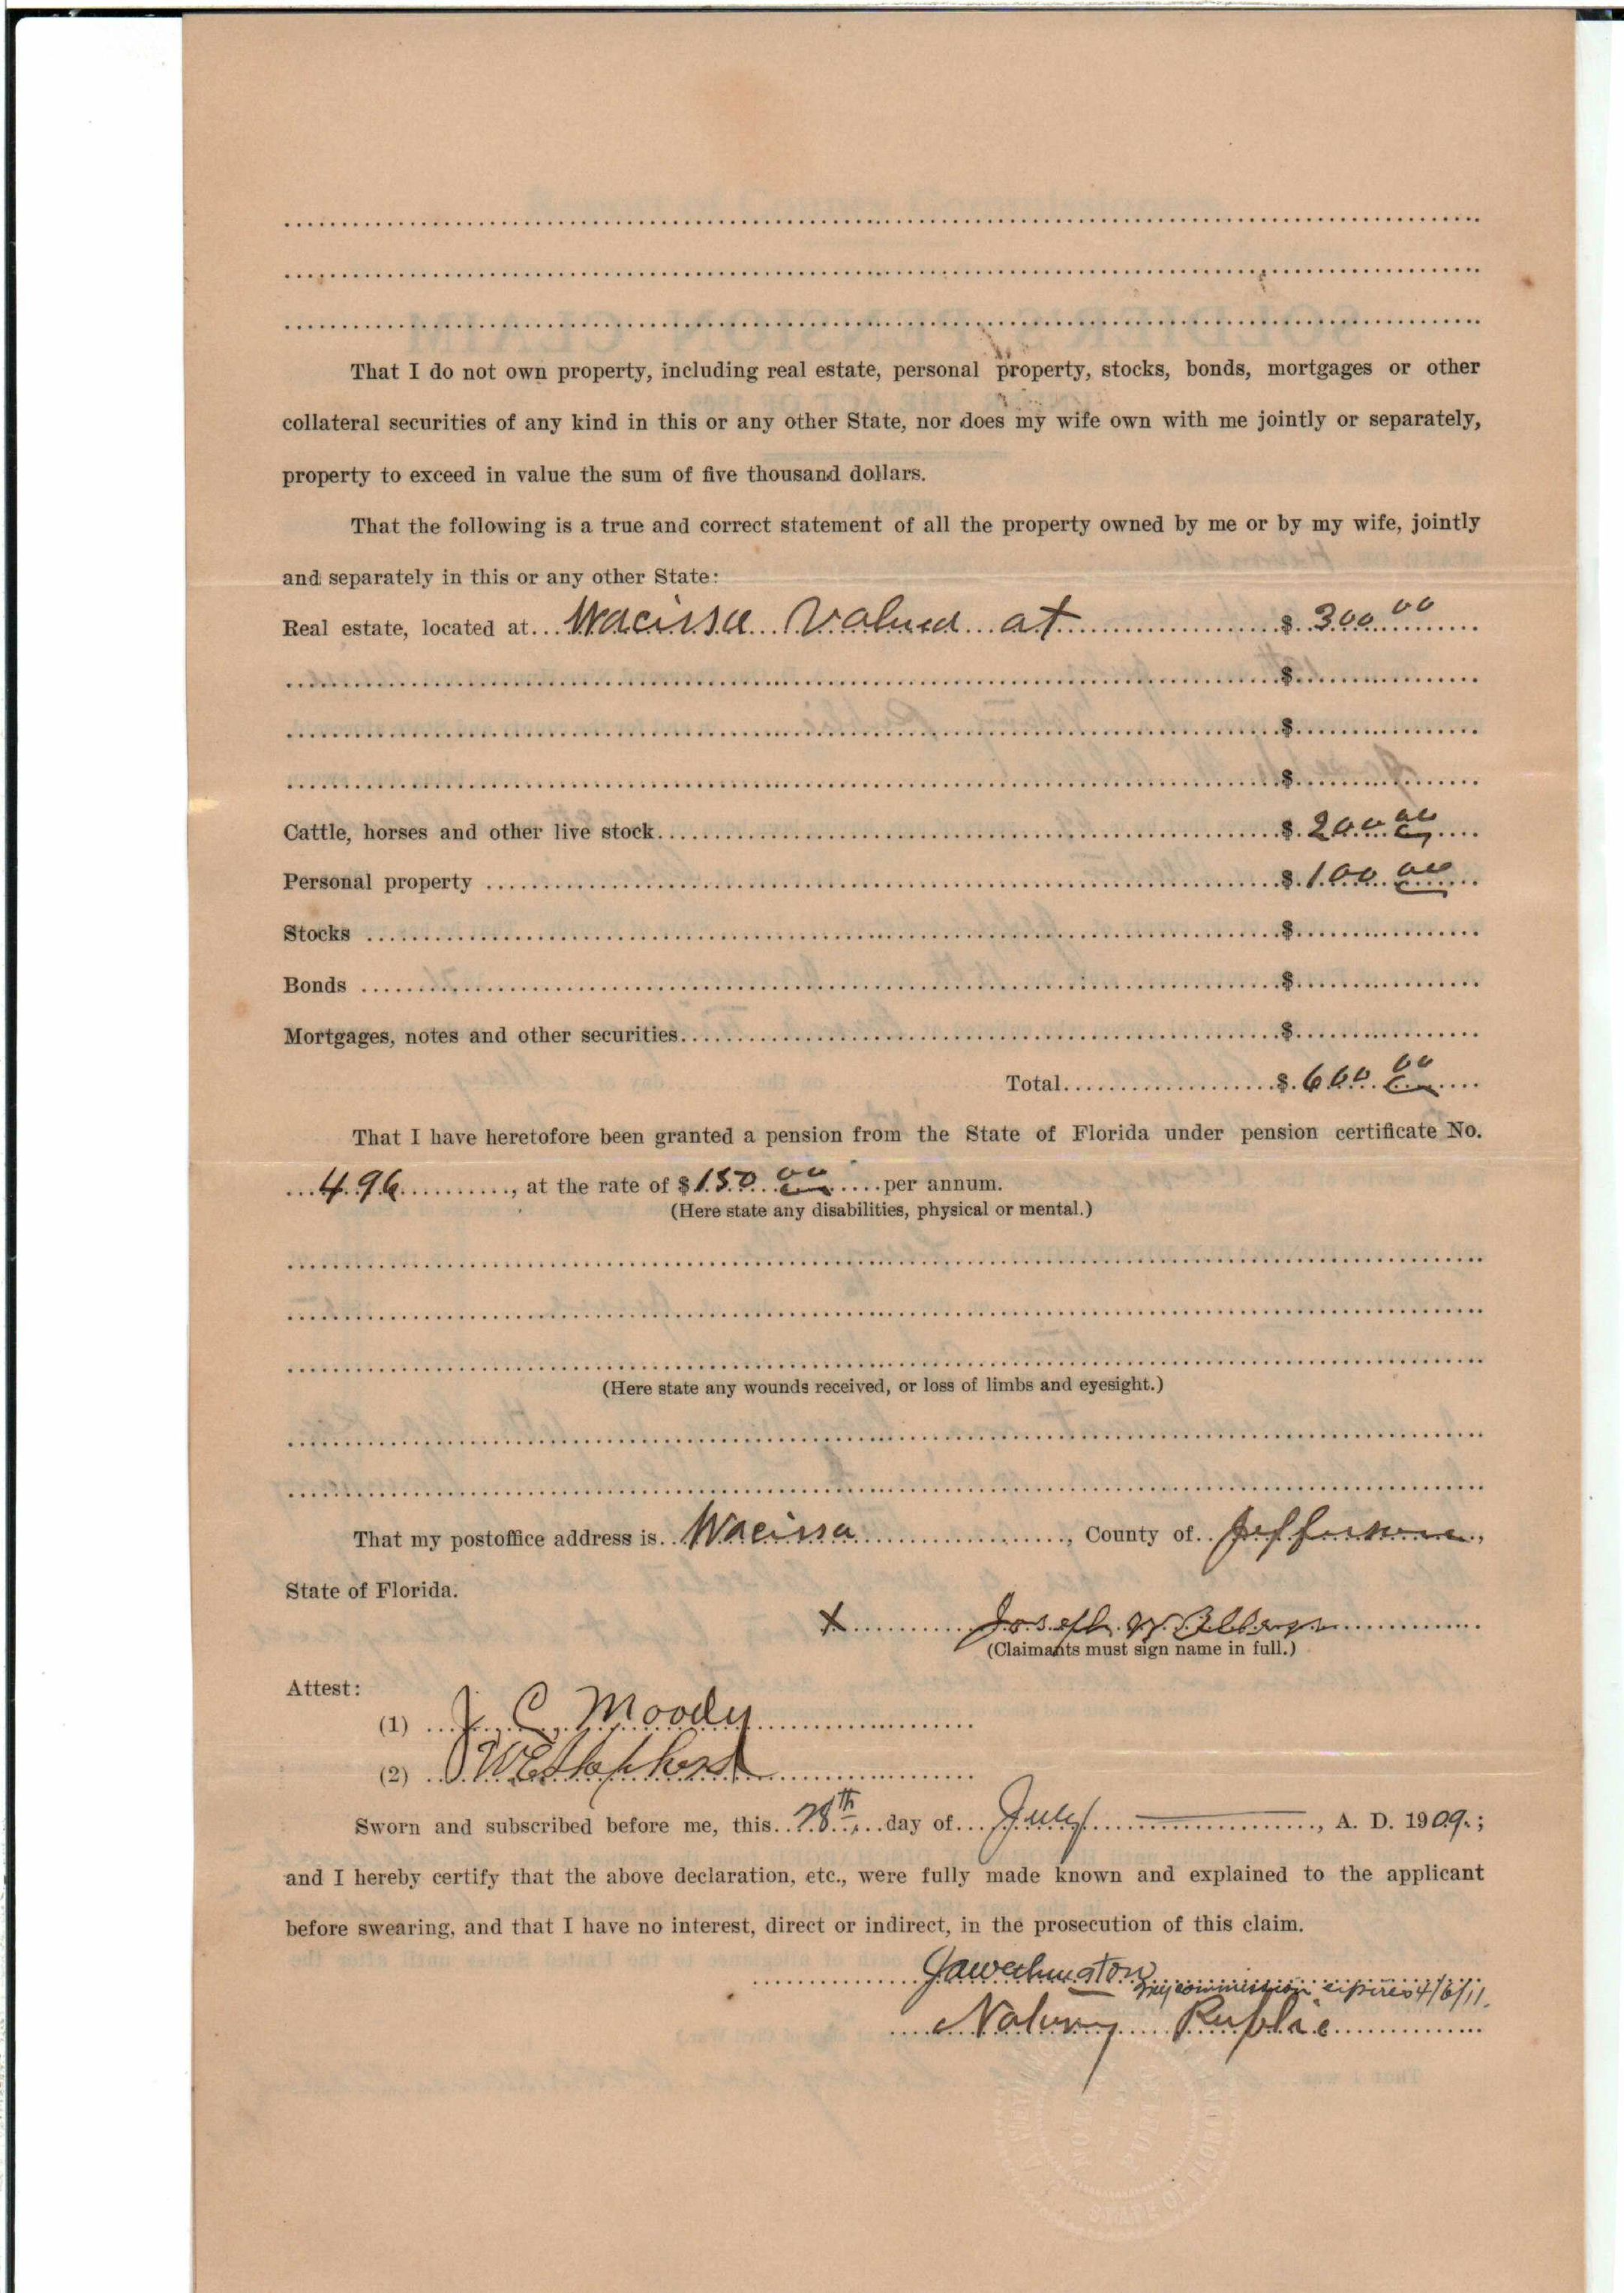 That I do not own property, including real estate, personal property, stocks, bonds, mortgages or other
collateral securities of any kind in this or any other State, nor does my wife own with me jointly or separately,
property to exceed in value the sum of five thousand dollars.
That the following is a true and correct statement of all the property owned by me or by my wife, jointly
and separately in this or any other State:
Real estate, located at Wacissa Valued at $ 300 00
$
$
$
Cattle, horses and other live stock $ 200 00
Personal property $ 100 00
Stocks $
Bonds $
Mortgages, notes and other securities $
Total $ 600 00
That I have heretofore been granted a pension from the State of Florida under pension certificate No.
496, at the rate of $ 150 00 per annum.
(Here state any disabilities, physical or mental.)
(Here state any wounds received, or loss of limbs and eyesight.)
That my postoffice address is Wacissa, County of Jefferson,
State of Florida.
X Joseph W
(Claimants must sign name in full.)
Attest:
(1) J. C. Moody
(2)
Sworn and subscribed before me, this 28th day of July, A. D. 1909;
and I hereby certify that the above declaration, etc., were fully made known and explained to the applicant
before swearing, and that I have no interest, direct or indirect, in the prosecution of this claim.
my commission expires 4/6/11.
Notary Public